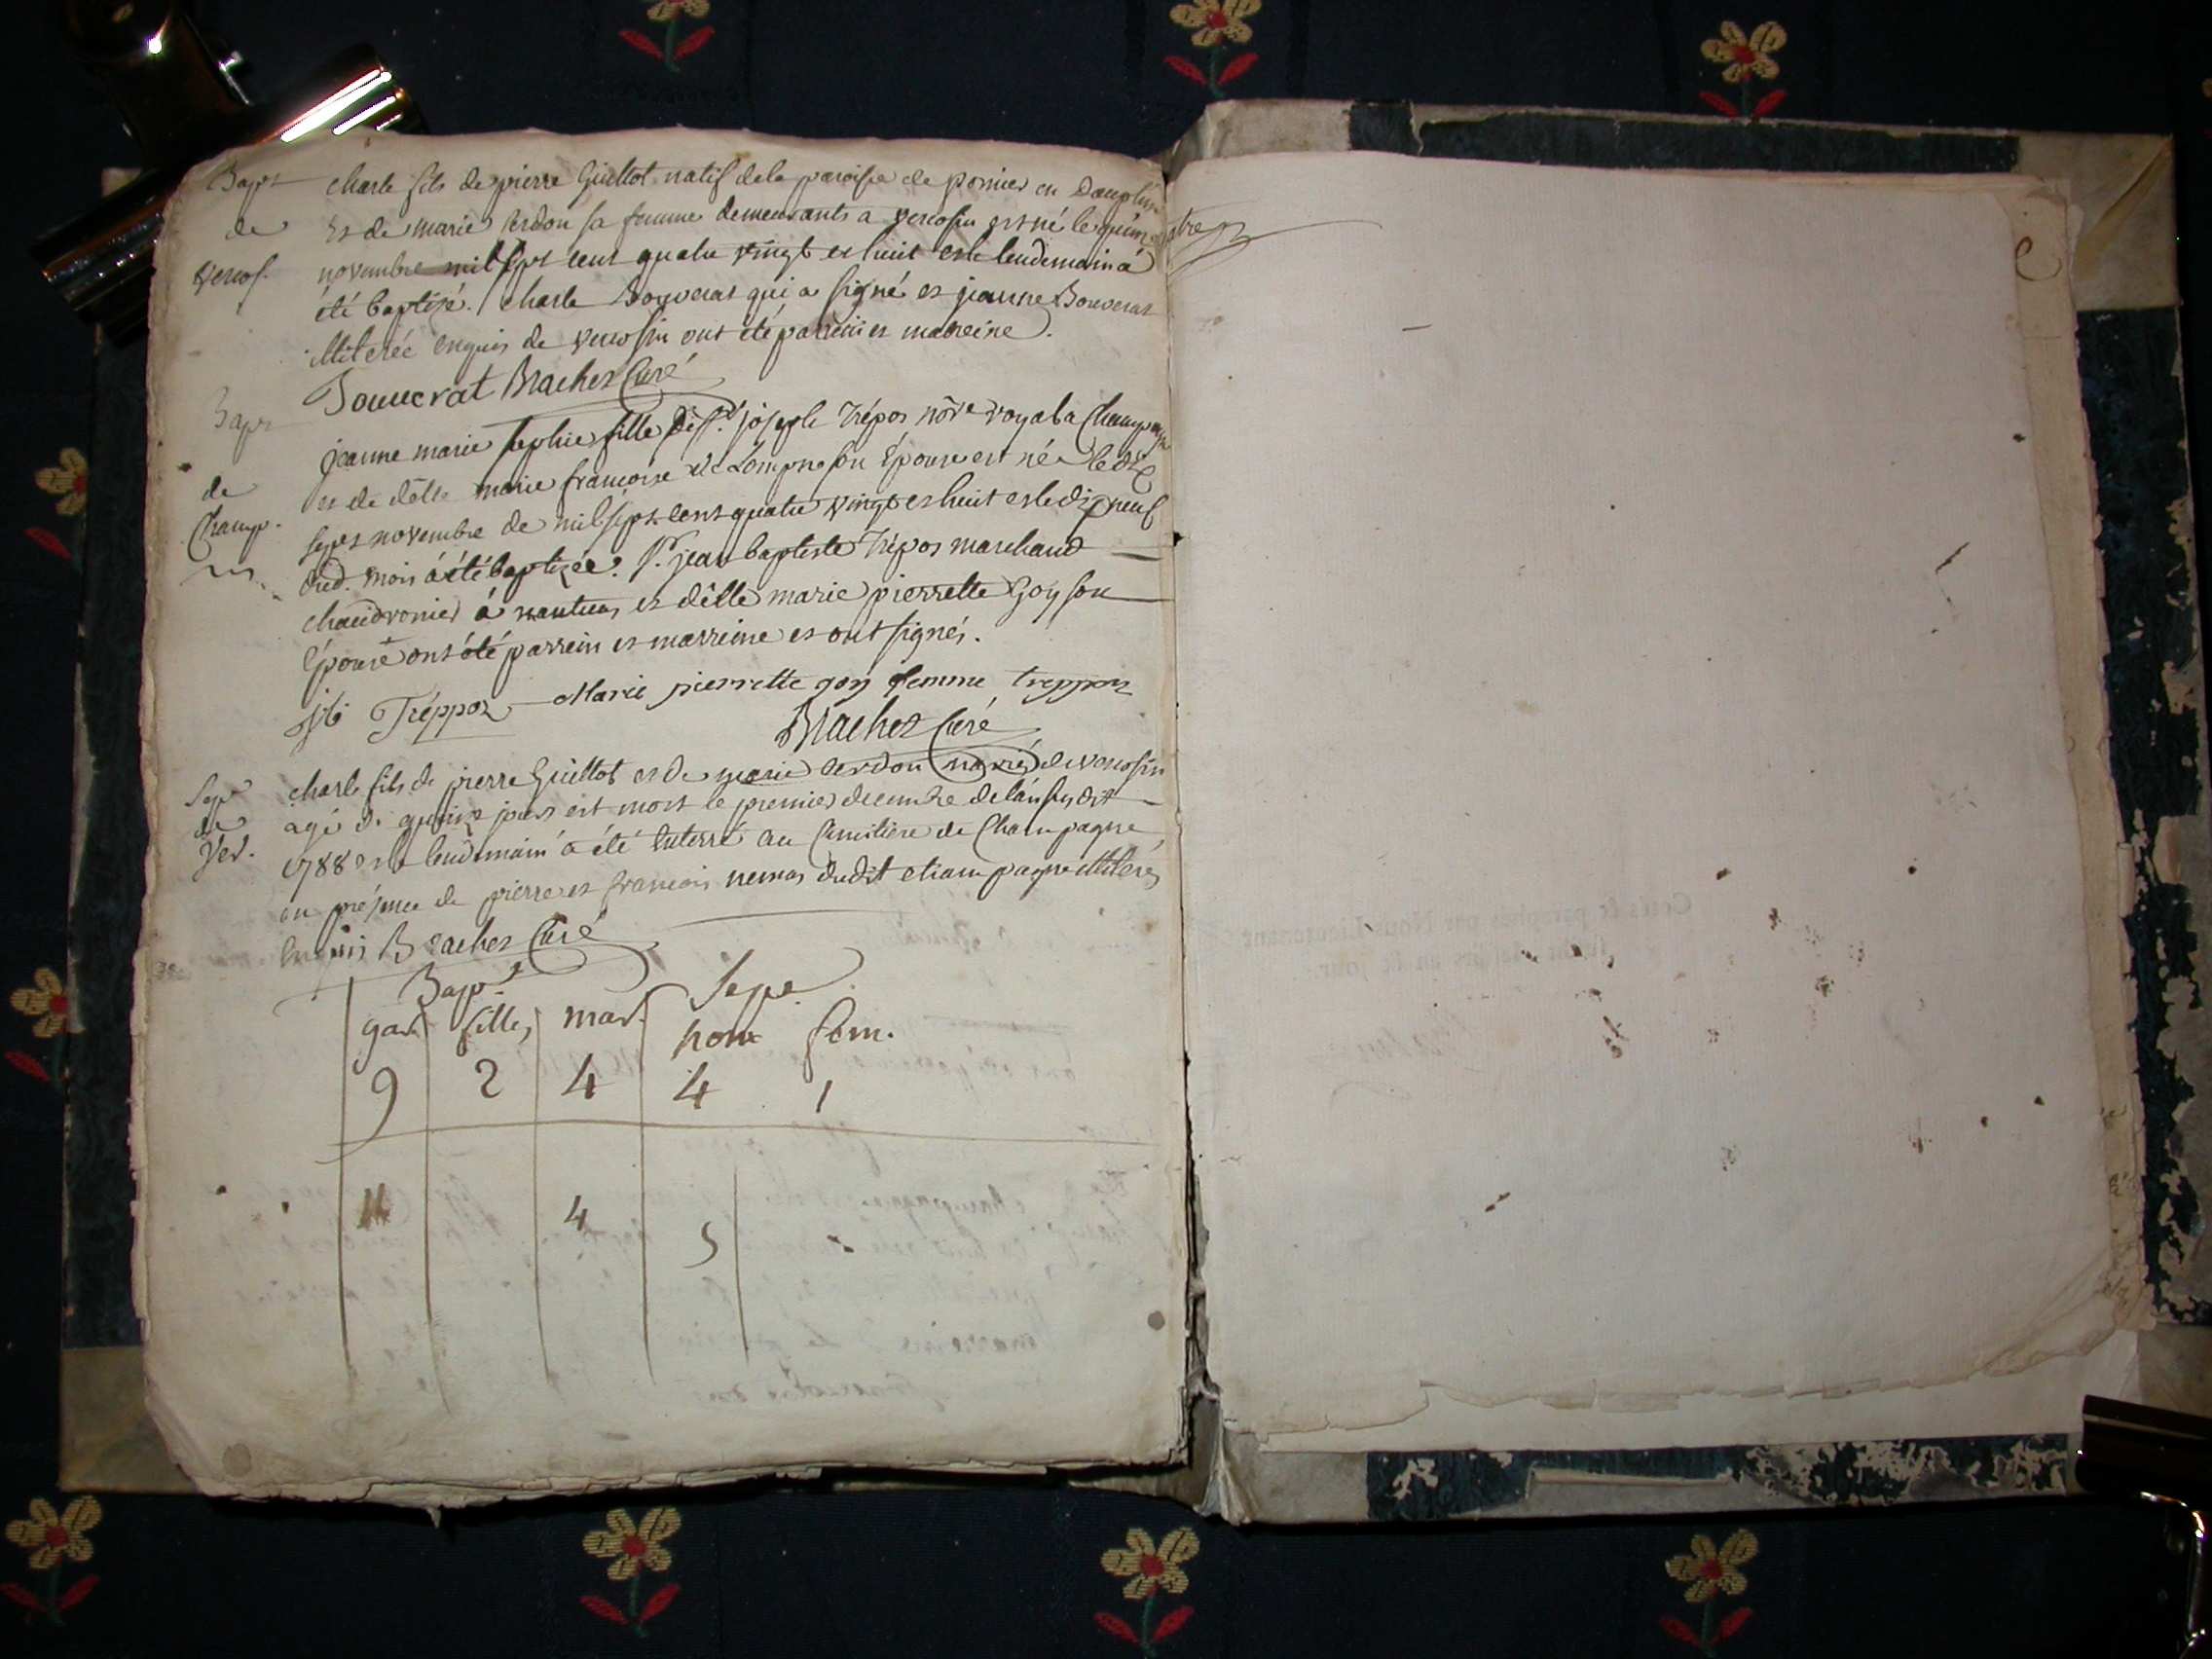 Bapt charle fils de pierre Guillot natif de la paroisse de pomier en Dauphiné
de et de marie Cerdon sa femme demeurants a verosin est né le quinze
novembre mil sept cent quatre vingt et huit et le lendemain á
été baptizé. charle Bouverat qui a signé et jeanne Bouverat
illiterée enquis de ont été parrein et marreine.
Bouverat Brachet Curé
Bapt
jeanne marie sophie fille de Sr. joseph Trépos nore royal a Champagne
de et de delle marie francoise de Lompne son Épouse est née le dix
Champ. sept novembre de mil sept cent quatre vingt et huit et le dix neuf
dud. mois á été baptizée. Sr. jean baptiste Trépos marchand
chaudronier á nantua et delle marie pierrette Goy son
Épouse ont été parrein et marreine et ont signés.
jb Tréppoz Marie pierrette goy femme treppoz
Brachet Curé
Sepe charle fils de pierre Guillot et de marie Cerdon mariés de
de agé de quinze jours est mort le premier decembre de l'án susdit
Ver. 1788 et le lendemain á été Enterré au Cimitière de Champagne
en présence de pierre et francois dudit champagne illiterés
Enquis Brachet Curé
Bapt. Sepe.
gar. filles mar. hom fem.
9 2 4 4 1
11 4 5